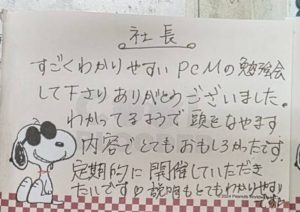 社長
すごくわかりやすい PCMの勉強会
して下さりありがとうございました。
わかってるようで頭をなやます
内容でとてもおもしろかったです。
定期的に開催していただき
たいです♡ 説明もとてもわかりやすい